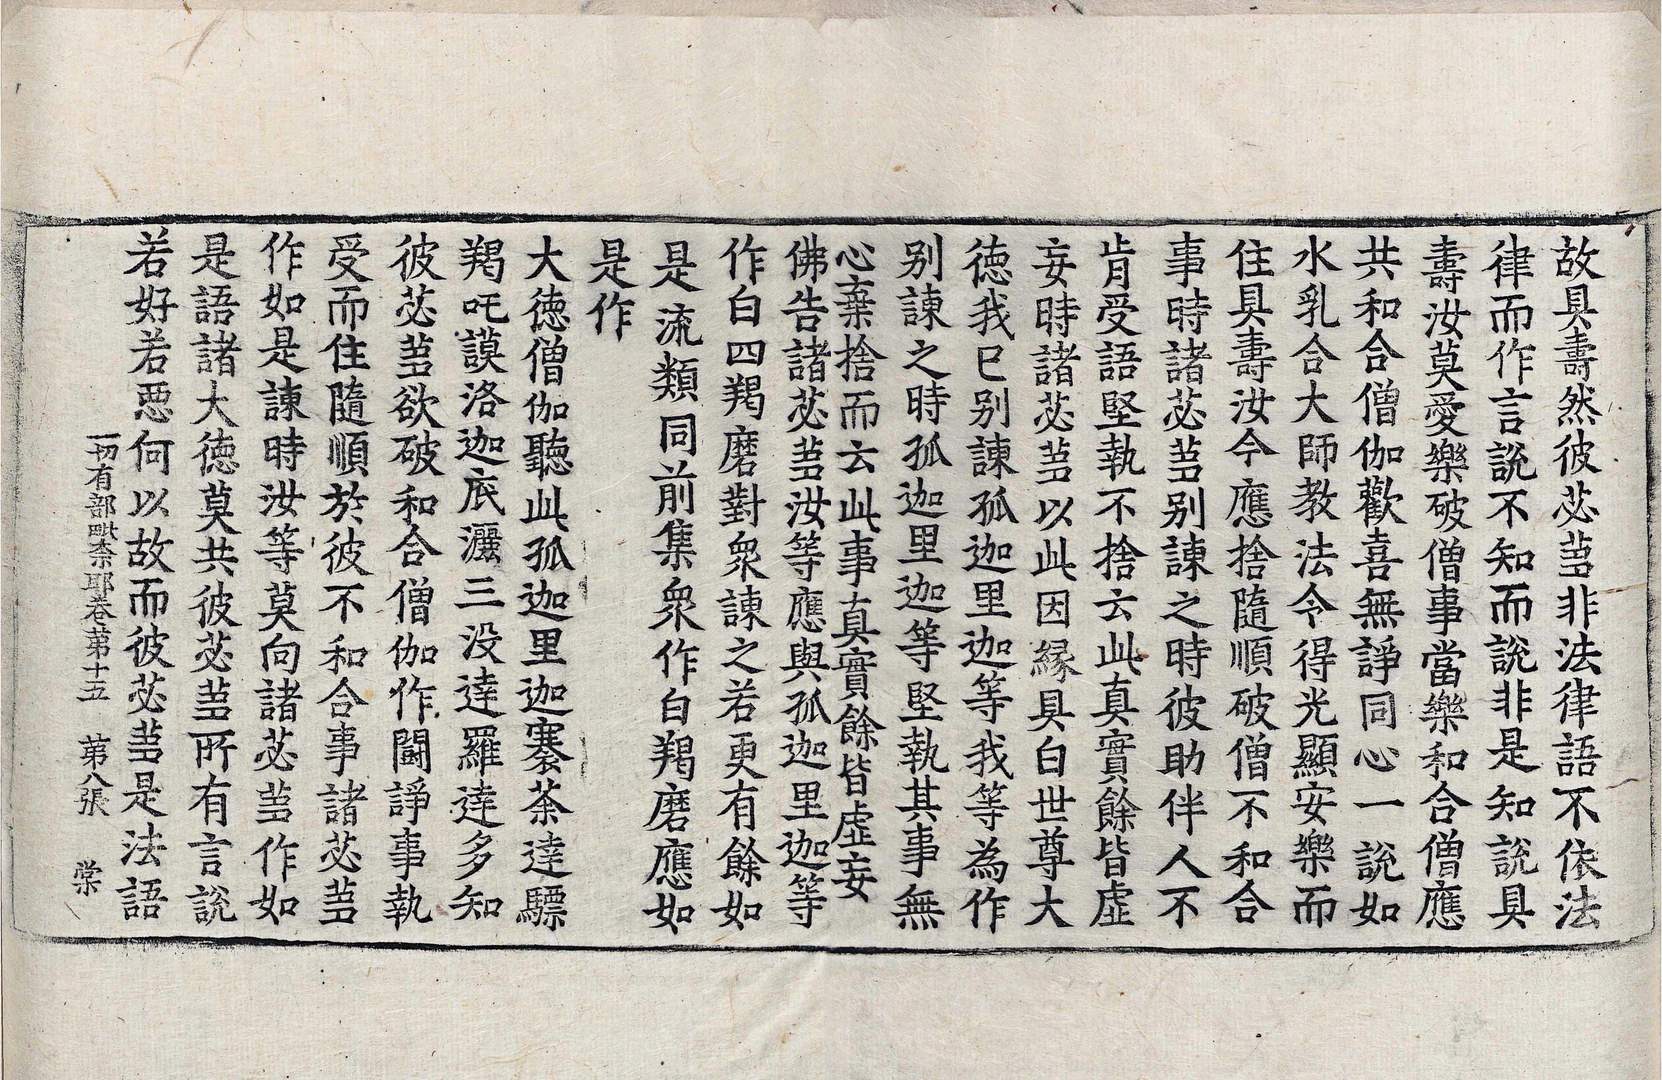 故具壽然彼苾蒭非法律語不依法
律而作言說不知而說非是知說具
壽汝莫愛樂破僧事當樂和合僧應
共和合僧伽歡喜無諍同心一說如
水乳合大師教法令得光顯安樂而
住具壽汝今應捨隨順破僧不和合
事時諸苾蒭別諫之時彼助伴人不
肯受語堅執不捨云此真實餘皆虛
妄時諸苾蒭以此因緣具白世尊大
德我已別諫孤迦里迦等我等為作
別諫之時孤迦里迦等堅執其事無
心棄捨而云此事真實餘皆虛妄
佛告諸苾蒭汝等應與孤迦里迦等
作白四羯磨對衆諫之若更有餘如
是流類同前集衆作白羯磨應如
是作
大德僧伽聽此孤迦里迦褰荼達驃
羯吒謨洛迦底灑三没達羅達多知
彼苾蒭欲破和合僧伽作鬪諍事執
受而住隨順於彼不和合事諸苾蒭
作如是諫時汝等莫向諸苾蒭作如
是語諸大德莫共彼苾蒭所有言說
若好若惡何以故而彼苾蒭是法語
一切有部毗奈耶卷第十五　第八張　棠